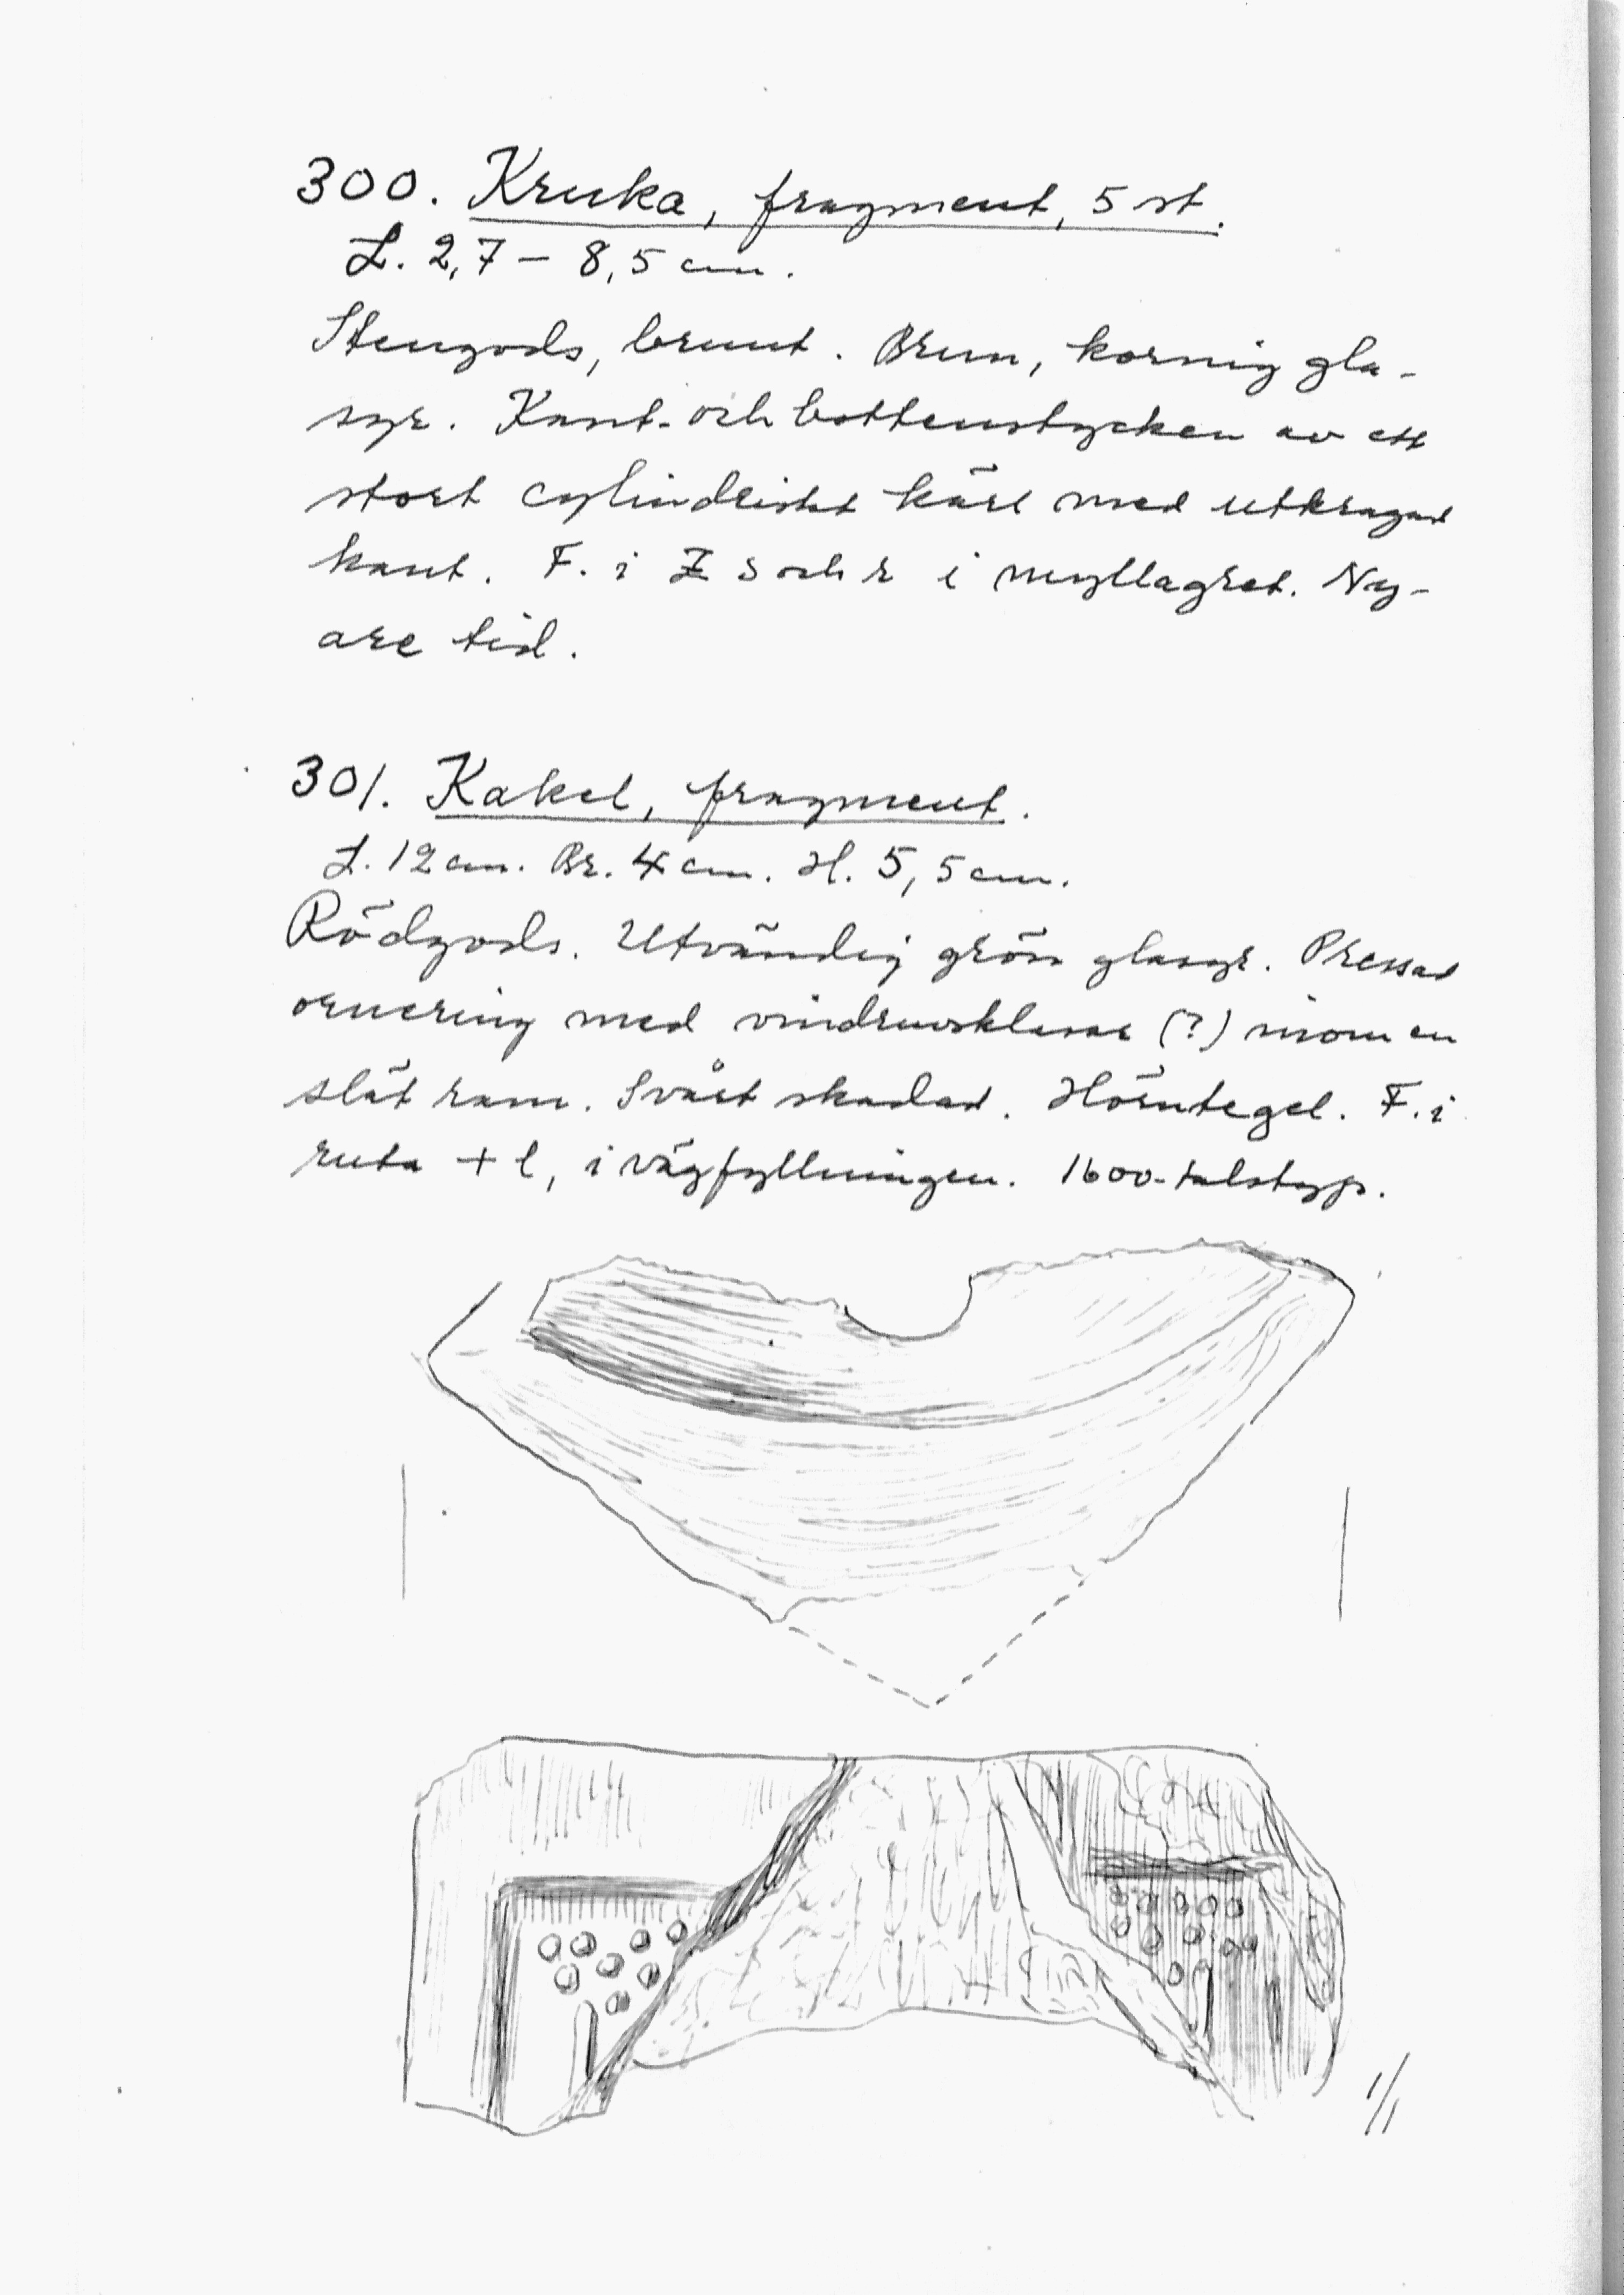 300. Kruka, fragment, 5 st.
L. 2,7 – 8,5 cm.
Stengods, brunt. Brun, kornig gla-
syr. Kant- och bottenstycken av ett
stort cylindriskt kärl med utkragad
kant. F. i Z s och r i myllagret. Ny-
are tid.
301. Kakel, fragment.
L. 12 cm. Br. 4 cm. H. 5,5 cm.
Rödgods. Utvändig grön glasyr. Pressad
ornering med vindruvsklasar (?) inom en
slät ram. Svårt skadad. Hörntegel. F. i
ruta + l, i vägfyllningen. 1600-talstyp.
1/1